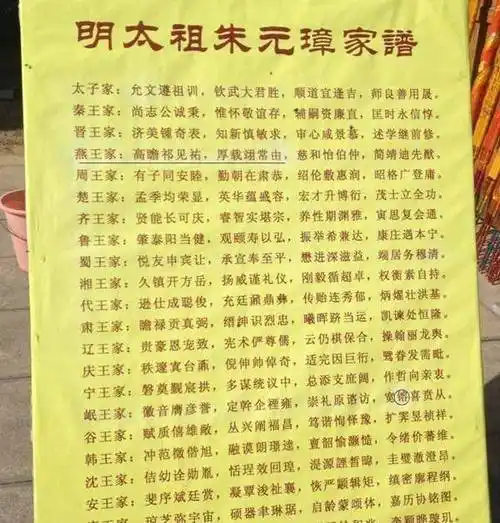 明太祖朱元璋家譜
太子家：允文遵祖训，钦武大君胜，顺道宜逢吉，师良善用晟。
秦王家：尚志公诚秉，惟怀敬谊存，辅嗣资廉直，匡时永信惇。
晋王家：济美锺奇表，知新慎敏求，审心咸景慕，述学继前修。
燕王家：高瞻祁见祐，厚载翊常由，慈和怡伯仲，简靖迪先猷。
周王家：有子同安睦，勤朝在肃恭，绍伦敷惠润，昭格广登庸。
楚王家：孟季均荣显，英华蕴盛容，宏才升博衍，茂士立全功。
齐王家：贤能长可庆，睿智实堪宗，养性期渊雅，寅思复会通。
鲁王家：肇泰阳当健，观颐寿以弘，振举希兼达，康庄遇本宁。
蜀王家：悦友申宾让，承宣奉至平，懋进深滋益，端居务穆清。
湘王家：久镇开方岳，扬威谨礼仪，刚毅循超卓，权衡素自持。
代王家：逊仕成聪俊，充廷鼐鼎彝，传贻连秀郁，炳耀壮洪基。
肃王家：瞻禄贡真弼，缙绅识烈忠，曦晖跻当运，凯谏处恒隆。
辽王家：贵豪恩宠致，宪术俨尊儒，云仍祺保合，操翰丽龙舆。
庆王家：秩邃寘台鼒，倪伸帅倬奇，适完因巨衍，鹭眷发需毗。
宁王家：磐奠觐宸拱，多谋统议中，总添支庶阔，作哲向亲衷。
岷王家：徽音膺彦誉，定幹企禋雍，崇礼原谘访，宽镕喜贲从。
谷王家：赋质僖雄敞，丛兴阐福昌，笃谐恂怿豫，扩霁昱祯祥。
韩王家：冲范徵偕旭，融谟朗璟逵，亶韶愉灏慥，令绪价蕃维。
沈王家：佶幼诠勋胤，恬珵效回瑝，湜源諲晢暐，圭璧澈澄昂。
安王家：斐序斌廷赏，凝覃浚祉襄，恢严颛辑矩，缜密廓程纲。
琼芝弥宇宙，硕器聿琚珽，启龄蒙颂体，嘉历协铭图。